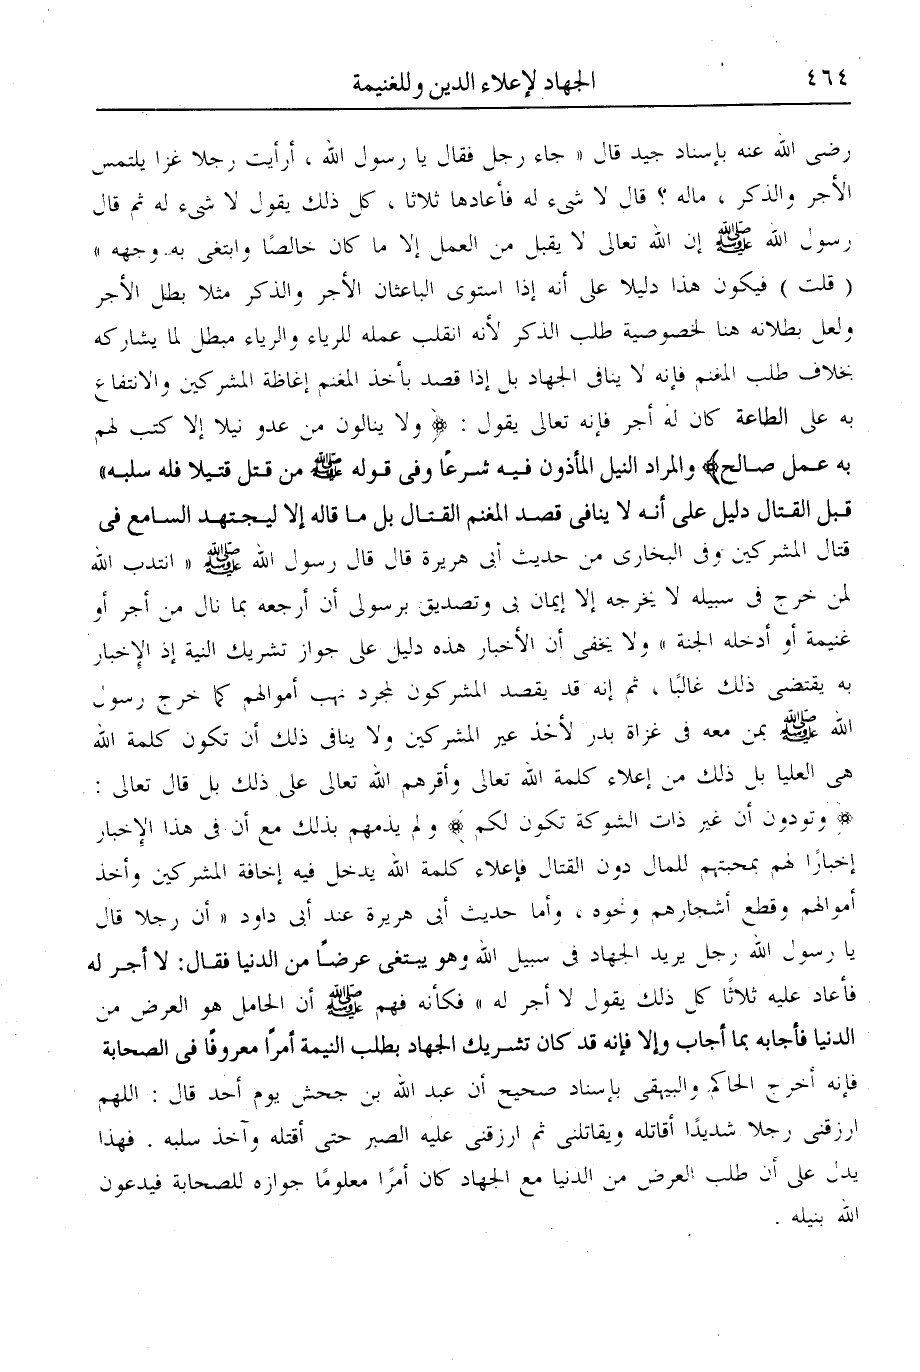 ٤٦٤ الجهاد لإعلاء الدين وللغنيمة
رضى الله عنه بإسناد جيد قال « جاء رجل فقال يا رسول الله ، أرأيت رجلا غزا يلتمس
الأجر والذكر ، ماله ؟ قال لا شىء له فأعادها ثلاثا ، كل ذلك يقول لا شىء له ثم قال
رسول الله ﷺ إن الله تعالى لا يقبل من العمل إلا ما كان خالصًا وابتغى به وجهه »
( قلت ) فيكون هذا دليلا على أنه إذا استوى الباعثان الأجر والذكر مثلا بطل الأجر
ولعل بطلانه هنا لخصوصية طلب الذكر لأنه انقلب عمله للرياء والرياء مبطل لما يشاركه
بخلاف طلب المغنم فإنه لا ينافى الجهاد بل إذا قصد بأخذ المغنم إغاظة المشركين والانتفاع
به على الطاعة كان له أجر فإنه تعالى يقول : ﴿ ولا ينالون من عدو نيلا إلا كتب لهم
به عمل صالح﴾ والمراد النيل المأذون فيه شرعًا وفى قوله ﷺ من قتل قتيلا فله سلبه»
قبل القتال دليل على أنه لا ينافى قصد المغنم القتال بل ما قاله إلا ليجتهد السامع فى
قتال المشركين وفى البخارى من حديث أبى هريرة قال قال رسول الله ﷺ « انتدب الله
لمن خرج فى سبيله لا يخرجه إلا إيمان بى وتصديق برسولى أن أرجعه بما نال من أجر أو
غنيمة أو أدخله الجنة » ولا يخفى أن الأخبار هذه دليل على جواز تشريك النية إذ الإخبار
به يقتضى ذلك غالبًا ، ثم إنه قد يقصد المشركون لمجرد نهب أموالهم كما خرج رسول
الله ﷺ بمن معه فى غزاة بدر لأخذ عير المشركين ولا ينافى ذلك أن تكون كلمة الله
هى العليا بل ذلك من إعلاء كلمة الله تعالى وأقرهم الله تعالى على ذلك بل قال تعالى :
﴿ وتودون أن غير ذات الشوكة تكون لكم ﴾ ولم يذمهم بذلك مع أن فى هذا الإخبار
إخبارًا لهم بمحبتهم للمال دون القتال فإعلاء كلمة الله يدخل فيه إخافة المشركين وأخذ
أموالهم وقطع أشجارهم ونحوه ، وأما حديث أبى هريرة عند أبى داود « أن رجلا قال
يا رسول الله رجل يريد الجهاد فى سبيل الله وهو يبتغى عرضًا من الدنيا فقال: لا أجر له
فأعاد عليه ثلاثًا كل ذلك يقول لا أجر له » فكأنه فهم ﷺ أن الحامل هو العرض من
الدنيا فأجابه بما أجاب وإلا فإنه قد كان تشريك الجهاد بطلب النيمة أمرًا معروفًا فى الصحابة
فإنه أخرج الحاكم والبيهقى بإسناد صحيح أن عبد الله بن جحش يوم أحد قال : اللهم
ارزقنى رجلا شديدًا أقاتله ويقاتلنى ثم ارزقنى عليه الصبر حتى أقتله وآخذ سلبه . فهذا
يدل على أن طلب العرض من الدنيا مع الجهاد كان أمرًا معلومًا جوازه للصحابة فيدعون
الله بنيله .